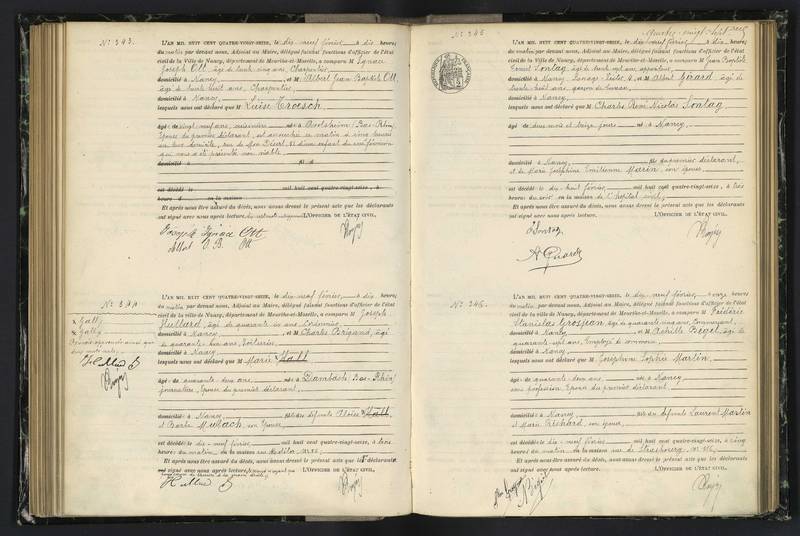 N° 343.
L'AN MIL HUIT CENT QUATRE-VINGT-SEIZE, le dix-neuf février, à dix heures
du matin par devant nous, Adjoint au Maire, délégué faisant fonctions d'officier de l'état
civil de la Ville de Nancy, département de Meurthe-et-Moselle, a comparu M Ignace
Joseph Ott, âgé de trente cinq ans, Charpentier,
domicilié à Nancy et M Albert Jean Baptiste Ott,
âgé de trente huit ans, Charpentier,
domicilié à Nancy
lesquels nous ont déclaré que M Luise Troesch
âgé de vingt neuf ans, née à Avolsheim (Bas-Rhin)
Epouse du premier déclarant, est accouchée ce matin à cinq heures
en leur domicile, rue de Mon Désert, d'un enfant du sexe féminin
qui nous a été présenté non viable.
domicilié à fils d
est décédé le mil huit cent quatre-vingt-seize, à
heure d en la maison
Et après nous être assuré du décès, nous avons dressé le présent acte que les déclarants
ont signé avec nous après lecture. L'OFFICIER DE L'ÉTAT CIVIL,
Joseph Ignace Ott
Albert J. B. Ott
N° 344
L'AN MIL HUIT CENT QUATRE-VINGT-SEIZE, le dix-neuf février, à dix heures
du matin par devant nous, Adjoint au Maire, délégué faisant fonctions d'officier de l'état
civil de la Ville de Nancy, département de Meurthe-et-Moselle, a comparu M Joseph
Hulhard, âgé de quarante six ans, Cordonnier,
domicilié à Nancy et M Charles Brigand, âgé
de quarante deux ans, Voiturier,
domicilié à Nancy
lesquels nous ont déclaré que M Marie Hall
âgé de quarante deux ans, née à Dambach (Bas-Rhin)
journalière, Epouse du premier déclarant
domicilié à Nancy fille des défunts Aloïse Hall
et Barbe Murbach, son Epouse,
est décédé le dix-neuf février mil huit cent quatre-vingt-seize, à trois
heures du matin, en la maison rue
Et après nous être assuré du décès, nous avons dressé le présent acte que le 1er déclarant
a signé avec nous après lecture, L'OFFICIER DE L'ÉTAT CIVIL,
N° 345
Quatre-vingt-sept
L'AN MIL HUIT CENT QUATRE-VINGT-SEIZE, le dix-neuf février, à dix heures
du matin par devant nous, Adjoint au Maire, délégué faisant fonctions d'officier de l'état
civil de la Ville de Nancy, département de Meurthe-et-Moselle, a comparu M Jean Baptiste
Ernest Sontag, âgé de trente six ans,
domicilié à Nancy et M Albert Girard, âgé de
trente huit ans, garçon de bureau,
domicilié à Nancy
lesquels nous ont déclaré que M Charles René Nicolas Sontag
âgé de deux mois et treize jours né à Nancy
domicilié à Nancy, fils du premier déclarant,
et de Marie Joséphine Emilienne Marin, son épouse,
est décédé le dix-huit février, mil huit cent quatre-vingt-seize, à trois
heures du soir en la maison de l'hôpital civil,
Et après nous être assuré du décès, nous avons dressé le présent acte que les déclarants
ont signé avec nous après lecture. L'OFFICIER DE L'ÉTAT CIVIL,
Sontag
A Girard
N° 346.
L'AN MIL HUIT CENT QUATRE-VINGT-SEIZE, le dix-neuf février, à onze heures
du matin par devant nous, Adjoint au Maire, délégué faisant fonctions d'officier de l'état
civil de la Ville de Nancy, département de Meurthe-et-Moselle, a comparu M Frédéric
Stanislas Grosjean, âgé de quarante cinq ans, Commerçant,
domicilié à Nancy et M Achille Bégel, âgé de
quarante sept ans, Employé de commerce,
domicilié à Nancy
lesquels nous ont déclaré que M Joséphine Sophie Martin
âgé de quarante deux ans, née à Nancy
sans profession, Epouse du premier déclarant
domicilié à Nancy fille des défunts Laurent Martin
et Marie Richard, son épouse,
est décédé le dix-neuf février mil huit cent quatre-vingt-seize, à cinq
heures du matin en la maison rue de Strasbourg,
Et après nous être assuré du décès, nous avons dressé le présent acte que les déclarants
ont signé avec nous après lecture. L'OFFICIER DE L'ÉTAT CIVIL,